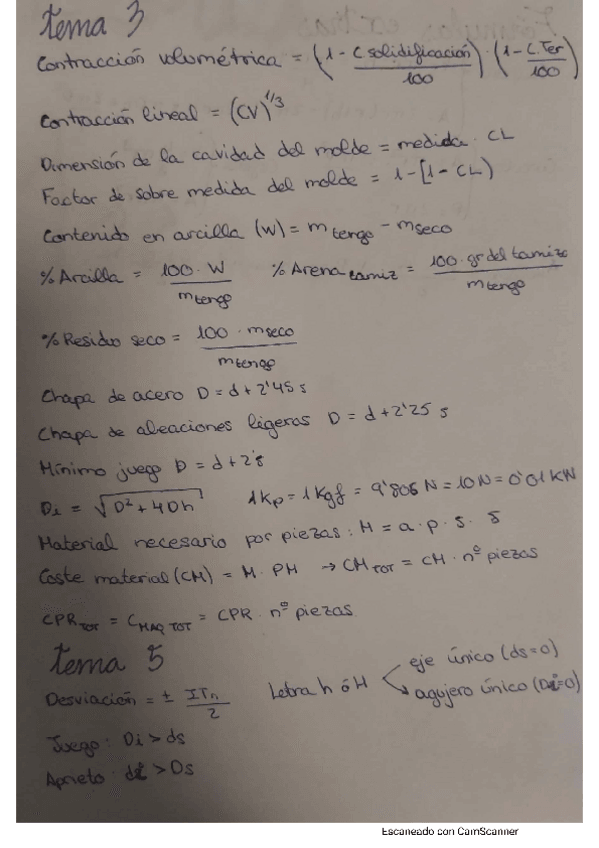 tema 3
Contracción volumétrica = (1 - C solidificación / 100) · (1 - C.Ter / 100)
Contracción lineal = (CV)^1/3
Dimensión de la cavidad del molde = medida · CL
Factor de sobre medida del molde = 1 - [1 - CL)
Contenido en arcilla (W) = m tengo - m seco
% Arcilla = 100 · W / m tengo    % Arena tamiz = 100 · gr del tamiz / m tengo
% Residuo seco = 100 · m seco / m tengo
Chapa de acero D = d + 2'45 s
Chapa de aleaciones ligeras D = d + 2'25 s
Mínimo juego D = d + 2's
Di = √D² + 4Dh    1Kp = 1Kgf = 9'806 N = 10N = 0'01KN
Material necesario por piezas: M = a · p · s · δ
Coste material (CM) = M · PM → CM TOT = CM · nº piezas
CPR TOT = C MAQ TOT = CPR · nº piezas
tema 5
Desviación = ± ITn / 2    Letra h ó H    eje único (ds=0)
agujero único (Di=0)
Juego: Di > ds
Aprieto: di > Ds
Escaneado con CamScanner